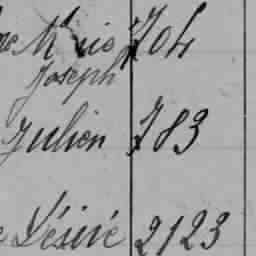 704
Joseph
Julien 783
Désiré 2123